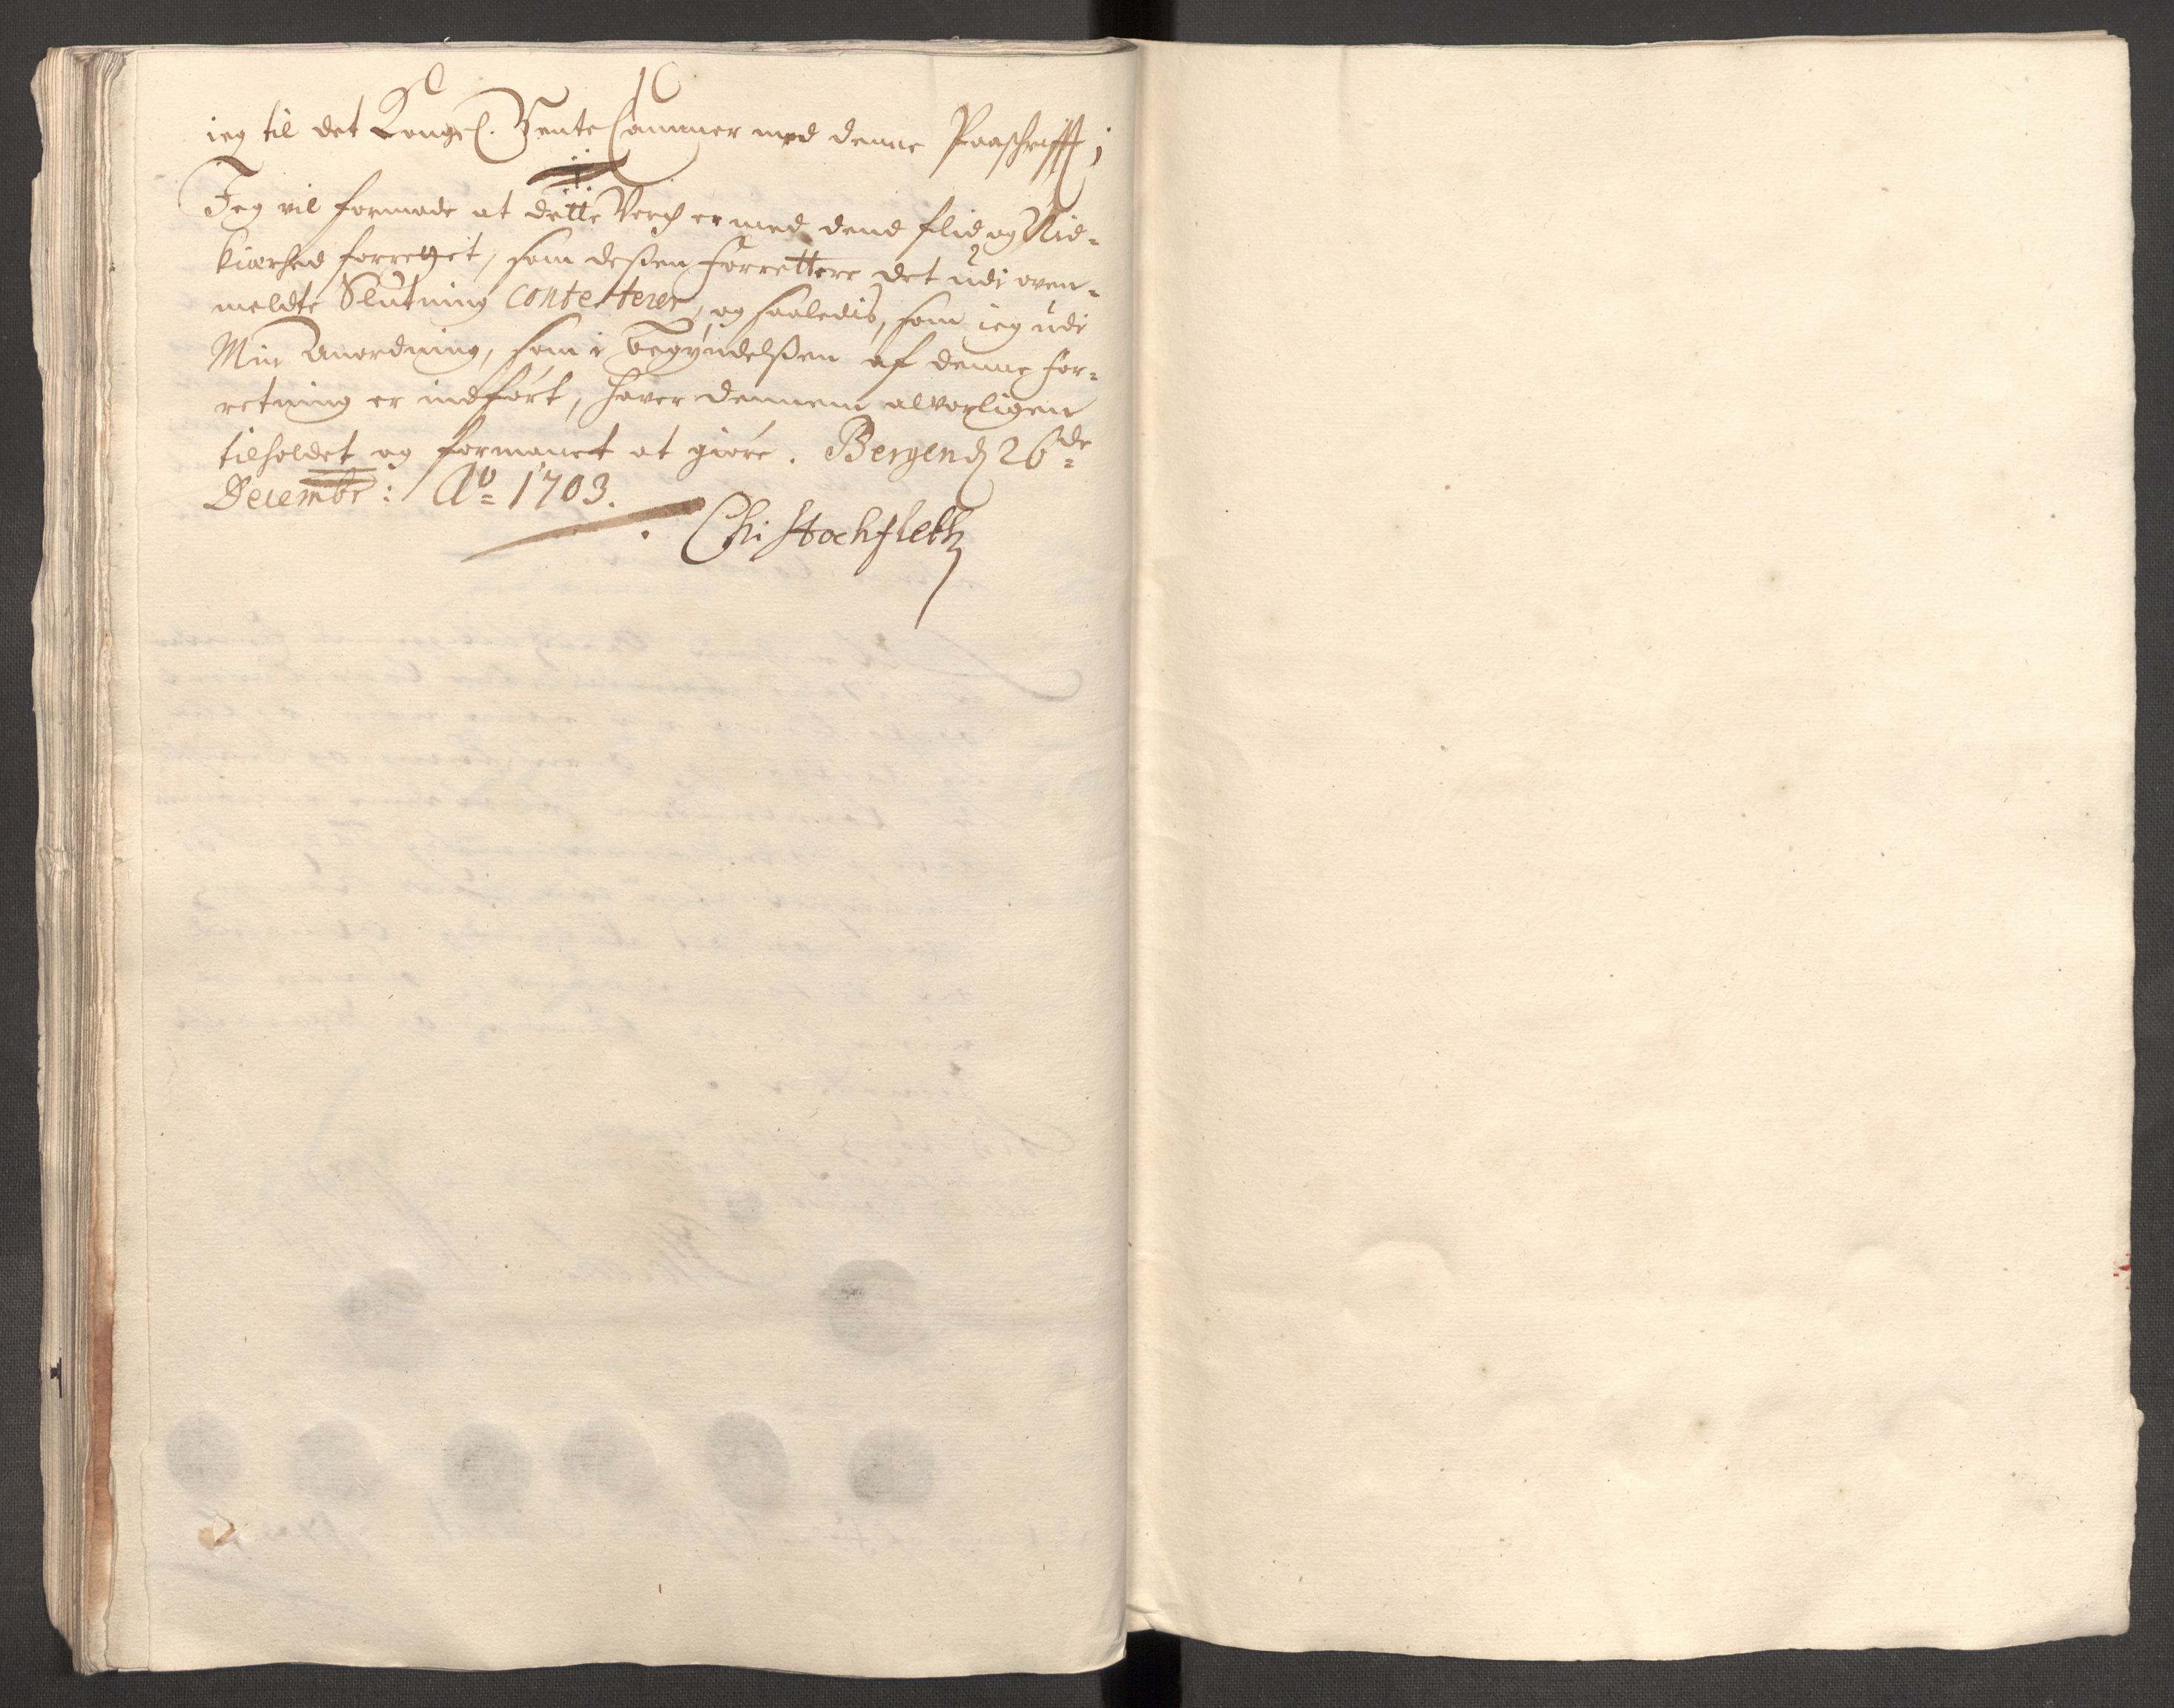 ieg til det Kongel. RenteCammer med denne Paaschrifft;
Jeg vil formode at dette Verch er med dend flid og Nid-
kiærhed forrettet, som deßen Forrettere det udi oven-
meldte Slutning contesterer, og saaledis, som ieg udi
Min Anordning, som i Begyndelßen af denne For-
retning er indført, hafver dennem alvorligen
tilholdet og formanet at giøre. Bergen d 26de
Decembr: Ao 1703.
Chr Stochfleth